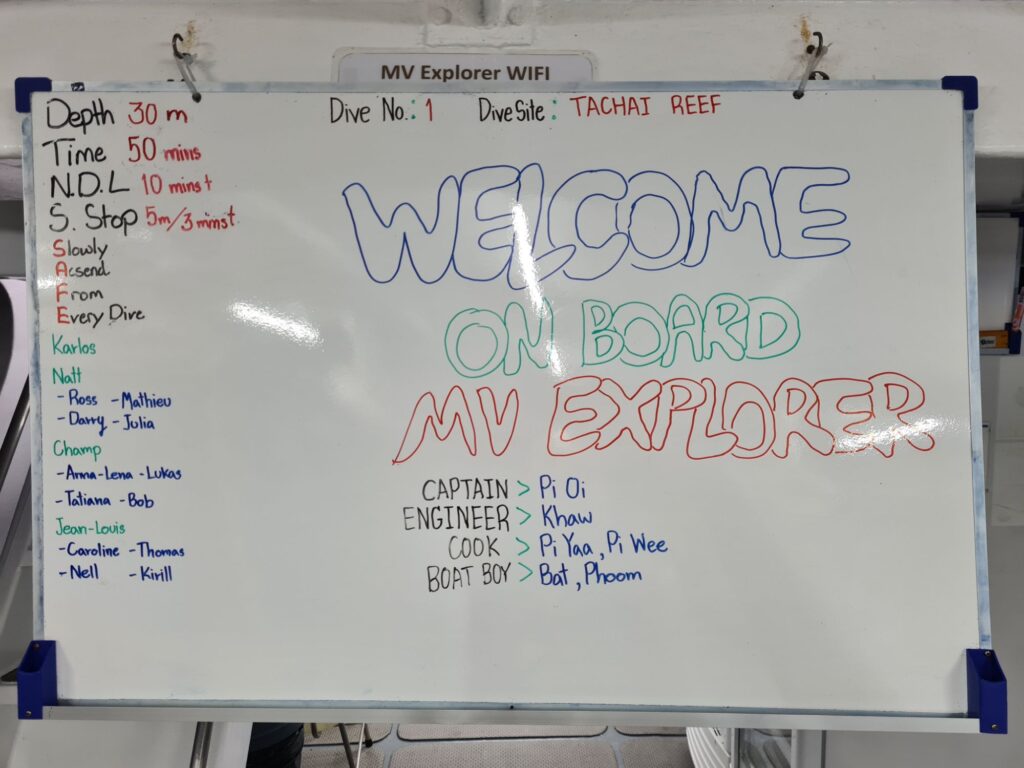 MV Explorer WIFI
Dive No.: 1 Dive Site: TACHAI REEF
Depth 30 m
Time 50 mins
N.D.L 10 mins↑
S. Stop 5m/3mins↑
Slowly
Acsend
From
Every Dive
Karlos
Natt
- Ross - Mathieu
- Darry - Julia
Champ
- Anna-Lena - Lukas
- Tatiana - Bob
Jean-Louis
- Caroline - Thomas
- Nell - Kirill
WELCOME
ON BOARD
MV EXPLORER
CAPTAIN > Pi Oi
ENGINEER > Khaw
COOK > Pi Yaa, Pi Wee
BOAT BOY > Bat, Phoom